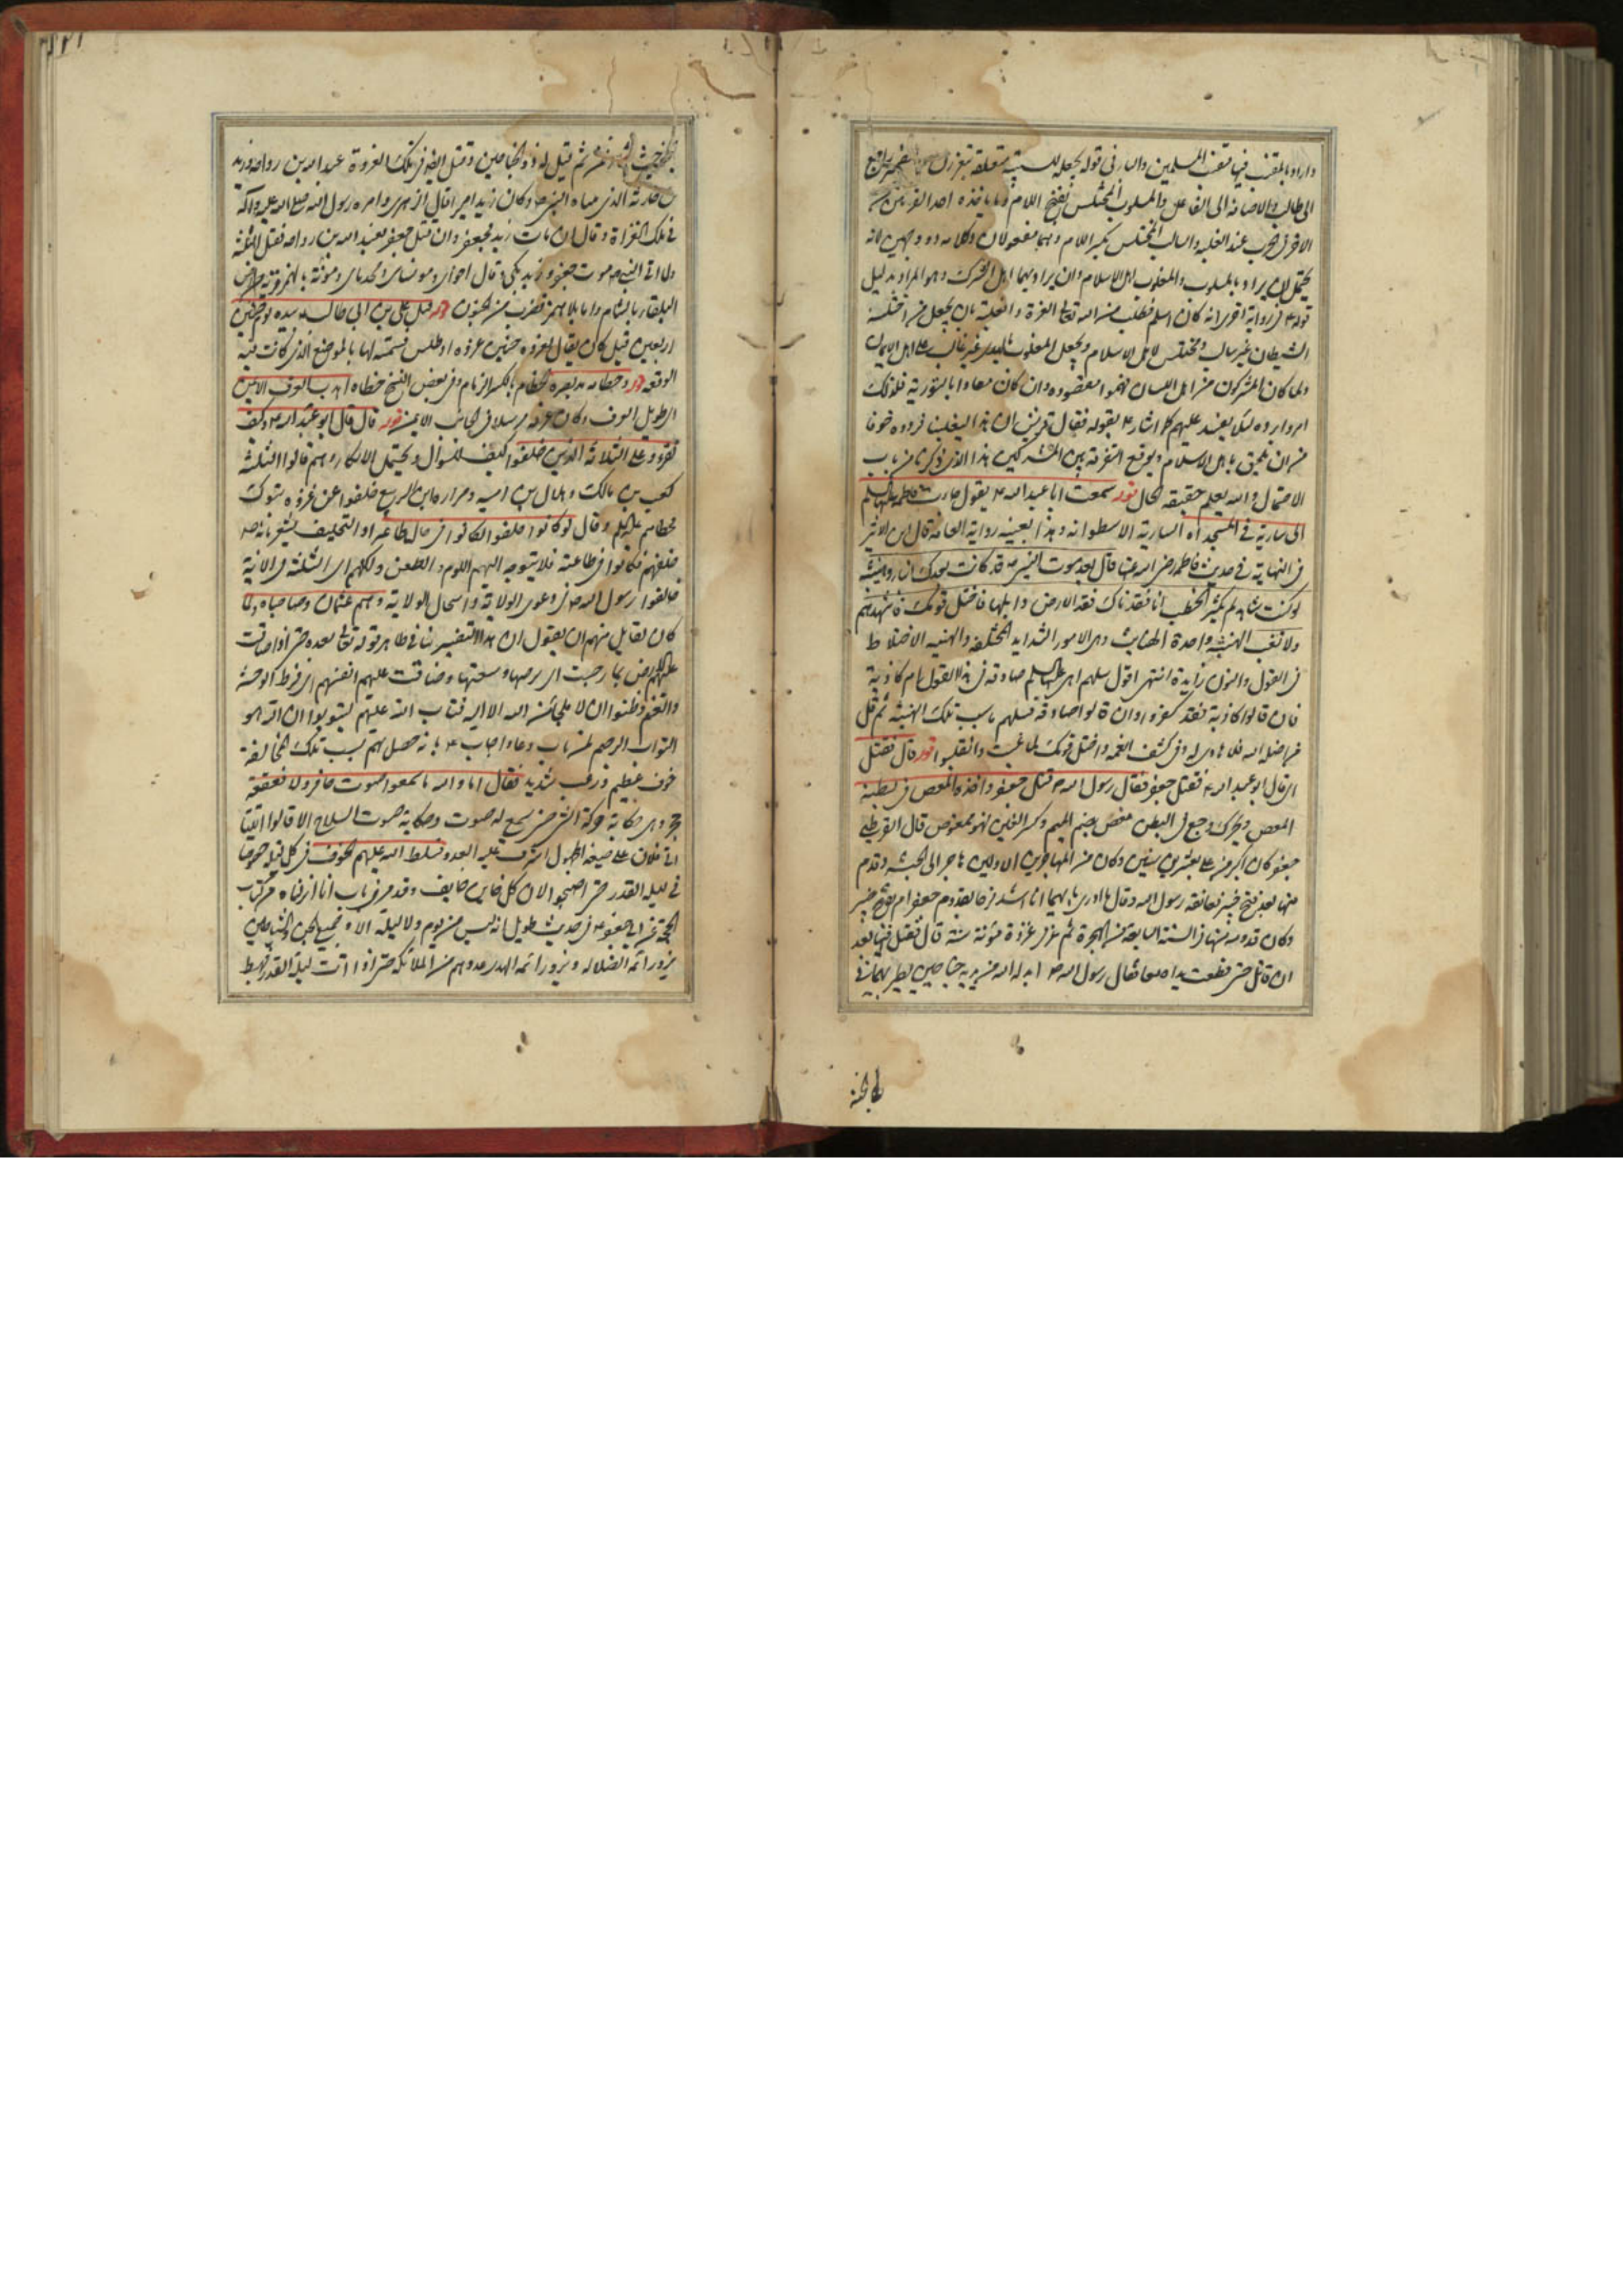 واراد بالمقنب فيها مقنب المسلمين والباء في قوله بجعله للسببية متعلقة بتغزون
الى طالب والاضافة الى الفاعل والمسلوب المختلس بفتح اللام وما ياخذه احد القرنين من
الاخر في الحرب عند الغلبة والسالب المختلس بكسر اللام وهما مفعولان وكلامه ذو وجهين لانه
يحتمل ان يراد بالمسلوب والمغلوب اهل الاسلام وان يراد بهما اهل الشرك وهو المراد بدليل
قوله في رواية اخرى انه كان اسلم فطلب من الله تعالى العزة والغلبة بان يجعل من اختلسه
الشيطان غير سالب ومختلس لاهل الاسلام ويجعل المغلوب غير غالب على اهل الايمان
ولما كان المشركون من اهل اللسان فهموا مقصوده وان كان معاد بالتورية فلذلك
امروا برده لئلا يفسد عليهم كما اشار بقوله فقال قريش ان هذا ليغلبنا فردوه خوفا
من ان يلحق باهل الاسلام ويوقع التفرقة بين المشركين هذا الذي ذكرنا من باب
الاحتمال والله يعلم حقيقة الحال قوله سمعت ابا عبد الله ع يقول جاءت فاطمة عليها السلم
الى سارية في المسجد اه السارية الاسطوانة وهذا بعينه رواية العامة قال ابن الاثير
في النهاية في حديث فاطمة رضي الله عنها قال بعد موت النبي ص قد كانت بعدك انباء وهنبثة
لو كنت شاهدها لم يكثر الخطب انا فقدناك فقد الارض وابلها فاختل قومك فاشهدهم
ولا تغب الهنبثة واحدة الهنابث وهي الامور الشدايد المختلفة والهنبثة الاختلاط
في القول والنون زايدة انتهى اقول سلهم اهي عليها السلم صادقة في هذا القول ام كاذبة
فان قالوا كاذبة فقد كفروا وان قالوا صادقة فسلهم ما سبب تلك الهنبثة ثم قل
من اضله الله فلا هادي له وفي كشف الغمة واختل قومك لما غبت وانقلبوا قوله قال فقتل
اي قال ابو عبد الله ع فقتل جعفر فقال رسول الله ص قتل جعفر واخذه المغص في بطنه
المغص ويحرك وجع في البطن مغص بضم الميم وكسر الغين فهو ممغوص قال القرطبي
جعفر كان اكبر من علي بعشر سنين وكان من المهاجرين الاولين هاجر الى الحبشة وقدم
منها بعد فتح خيبر فعانقه رسول الله وقال ما ادري بايهما انا اشد فرحا بقدوم جعفر ام بفتح خيبر
وكان قدومه منها في السنة السابعة من الهجرة ثم غزا غزوة مؤتة سنة قال فقتل فيها بعد
ان قاتل حتى قطعت يداه معا فقال رسول الله ص ابدله الله من يديه جناحين يطير بهما في
في الجنة
الجنة حيث شاء فمن ثم قيل له ذو الجناحين وقتل ايضا في تلك الغزوة عبد الله بن رواحة وزيد
بن حارثة الذي تبناه النبي ص وكان زيد اميرا قال الزهري وامره رسول الله صلى الله عليه وآله
في تلك الغزاة وقال ان مات زيد فجعفر وان قتل جعفر فعبد الله بن رواحة فقتل الثلثة
ولما اتى النبي ص موت جعفر وزيد بكى وقال اخواي ومونساي ومحدثاي ومؤتة بالهمز قرية من ارض
البلقاء بالشام واما بلا همز فضرب من الجنون قوله قتل علي بن ابي طالب بيده يوم حنين
اربعين قيل كان يقال لغزوة حنين غزوة اوطاس تسمية لها بالموضع الذي كانت فيه
الوقعة قوله وخطامه الخطام بالكسر الزمام وفي بعض النسخ خطاه اهدب العرف الايمن
الطويل العرف وكان عرفه مرسلا في الجانب الايمن قوله قال قال ابو عبد الله ع وكيف
تقرؤ وعلى الثلاثة الذين خلفوا كيف للسؤال ويحتمل الانكار وهم قالوا الثلثة
كعب بن مالك وهلال بن امية ومرارة بن الربيع خلفوا عن غزوة تبوك
خطاهم عليه السلم وقال لو كانوا خلفوا لكانوا في حال طاعة اذ التخليف يشعر بانه ص
خلفهم فكانوا في طاعته فلا يتوجه اليهم اللوم والطعن ولكنهم اي الثلثة في الاية
خالفوا رسول الله ص في دعوى الولاية وانتحال الولاية وهم عثمان وصاحباه ولما
كان لقايل منهم ان يقول ان هذا التفسير ينافي ظاهر قوله تعالى بعده حتى اذا ضاقت
عليهم الارض بما رحبت اي برحبها وسعتها وضاقت عليهم انفسهم اي من فرط الوحشة
والغم وظنوا ان لا ملجا من الله الا اليه فتاب الله عليهم ليتوبوا ان الله هو
التواب الرحيم لمن تاب ودعا واجاب ع بانه حصل لهم بسبب تلك المخالفة
خوف عظيم ورعب شديد فقال اما والله ما سمعوا صوت حافر ولا قعقعة
حجر وهي حكاية حركة الشيء حتى يسمع له صوت وحكاية صوت السلاح الا قالوا اتينا
اتي فلان على صيغة المجهول اشرف عليه العدو فسلط الله عليهم الخوف في كل ليلة خصوصا
في ليلة القدر حتى اصبحوا لان كل خاين خايف وقد مر في باب انا انزلناه من كتاب
الحجة عن ابي جعفر ع في حديث طويل انه ليس من يوم ولا ليلة الا وجميع الجن والشياطين
تزور ائمة الضلالة ويزور ائمة الهدى عددهم من الملائكة حتى اذا اتت ليلة القدر فيهبط